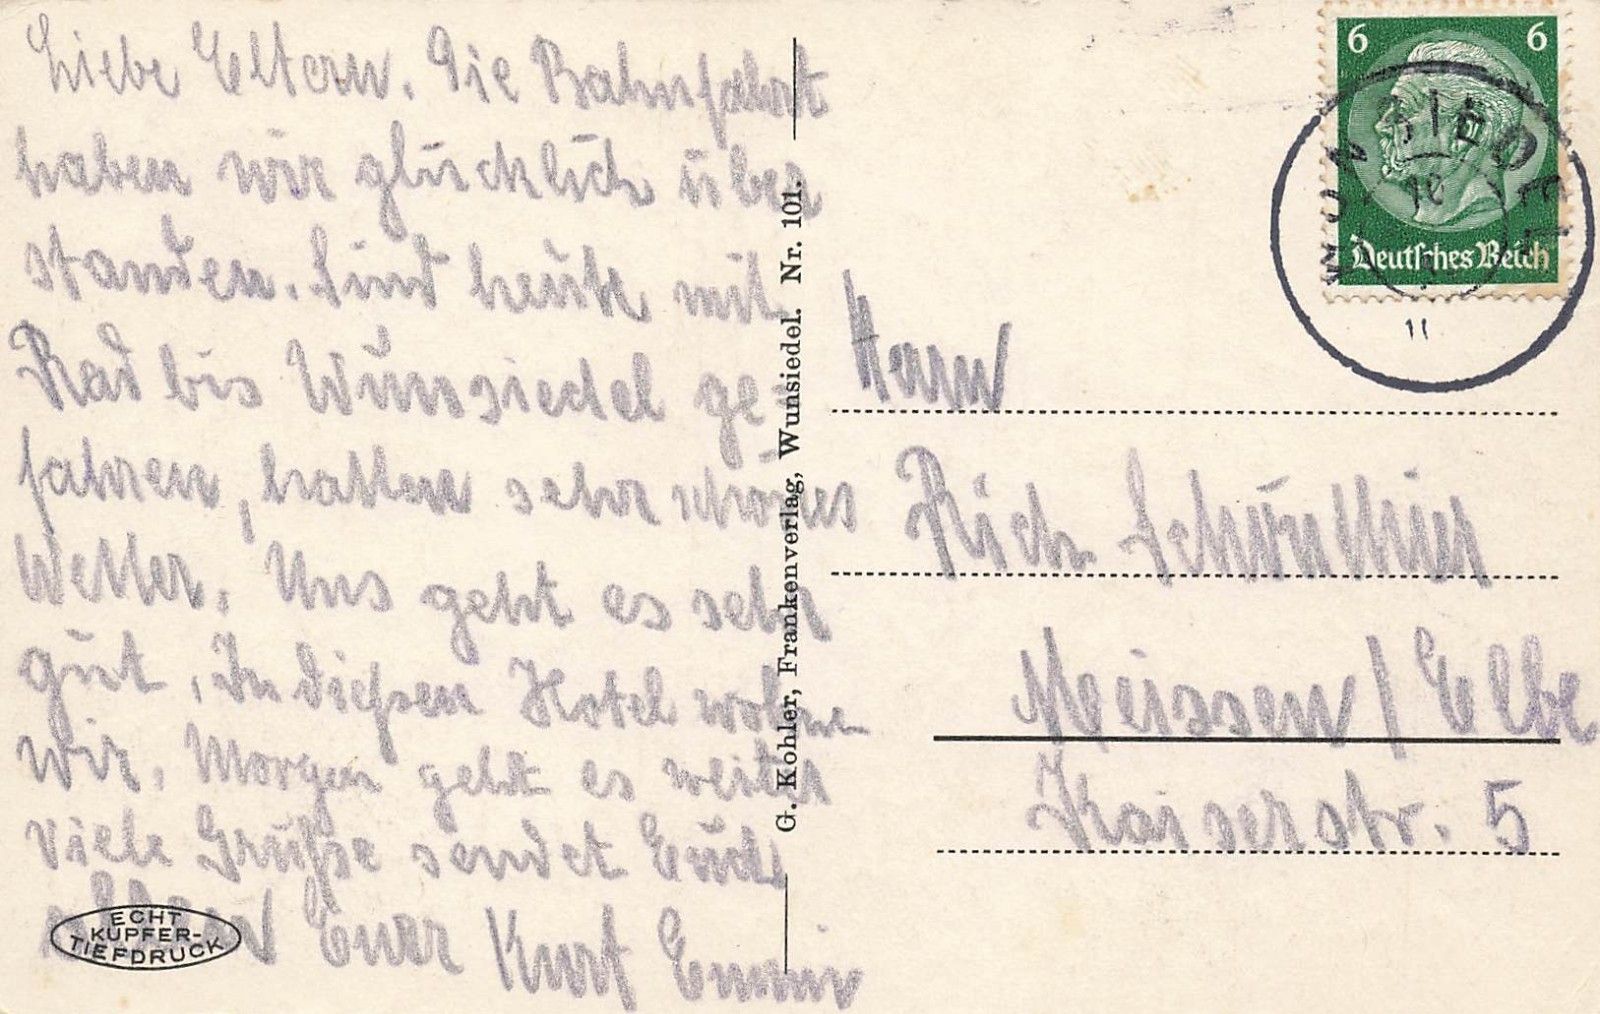 Liebe Eltern. Die Bahnfahrt
haben wir glücklich über
standen. Sind heute mit
Rad bis Wunsiedel ge-
fahren, hatten sehr schönes
Wetter. Uns geht es sehr
gut. In diesen Hotel wohnen
wir. Morgen geht es weiter
Viele Grüße sendet Euch
allen Euer Kurt
ECHT
KUPFER-
TIEFDRUCK
G. Kohler, Frankenverlag, Wunsiedel. Nr. 101.
6 6
Deutsches Reich
WUNSIEDEL
Herrn
Rich
Meissen / Elbe
Kaiserstr. 5